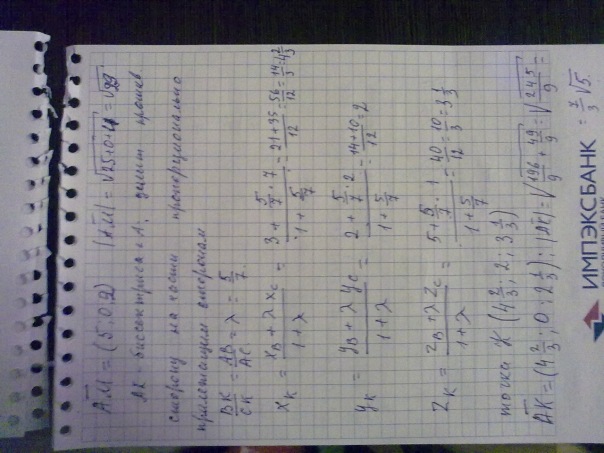 $\overrightarrow{AM}$ = (5; 0; 2) |$\overrightarrow{AM}$| = √(25+0+4) = √29
AK - биссектриса ∠A; делит противо
сторону на части пропорционально
прилежащим сторонам
BK/CK = AB/AC = λ = 5/7.
x_K = (x_B + λx_C)/(1 + λ) = (3 + 5/7 · 7)/(1 + 5/7) = (21 + 35)/12 = 56/12 = 14/3 = 4 2/3
y_K = (y_B + λy_C)/(1 + λ) = (2 + 5/7 · 2)/(1 + 5/7) = (14 + 10)/12 = 2
z_K = (z_B + λz_C)/(1 + λ) = (5 + 5/7 · 1)/(1 + 5/7) = 40/12 = 10/3 = 3 1/3
точка K (4 2/3; 2; 3 1/3)
$\overrightarrow{AK}$ = (4 2/3; 0; 2 1/3); |$\overrightarrow{AK}$| = √(196/9 + 49/9) = √(245/9) =
= 7/3 √5.
ИМПЭКСБАНК